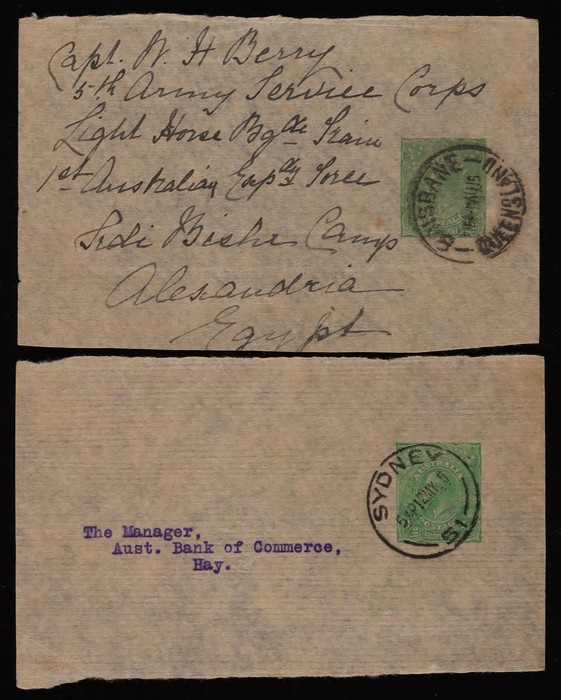 Capt. W. H Berry
5th Army Service Corps
Light Horse Bgde Train
1st Australian Expdy Force
Sidi Bishr Camp
Alexandria
Egypt
BRISBANE
QUEENSLAND
The Manager,
Aust. Bank of Commerce,
Hay.
SYDNEY
51
AUSTRALIA
POSTAGE